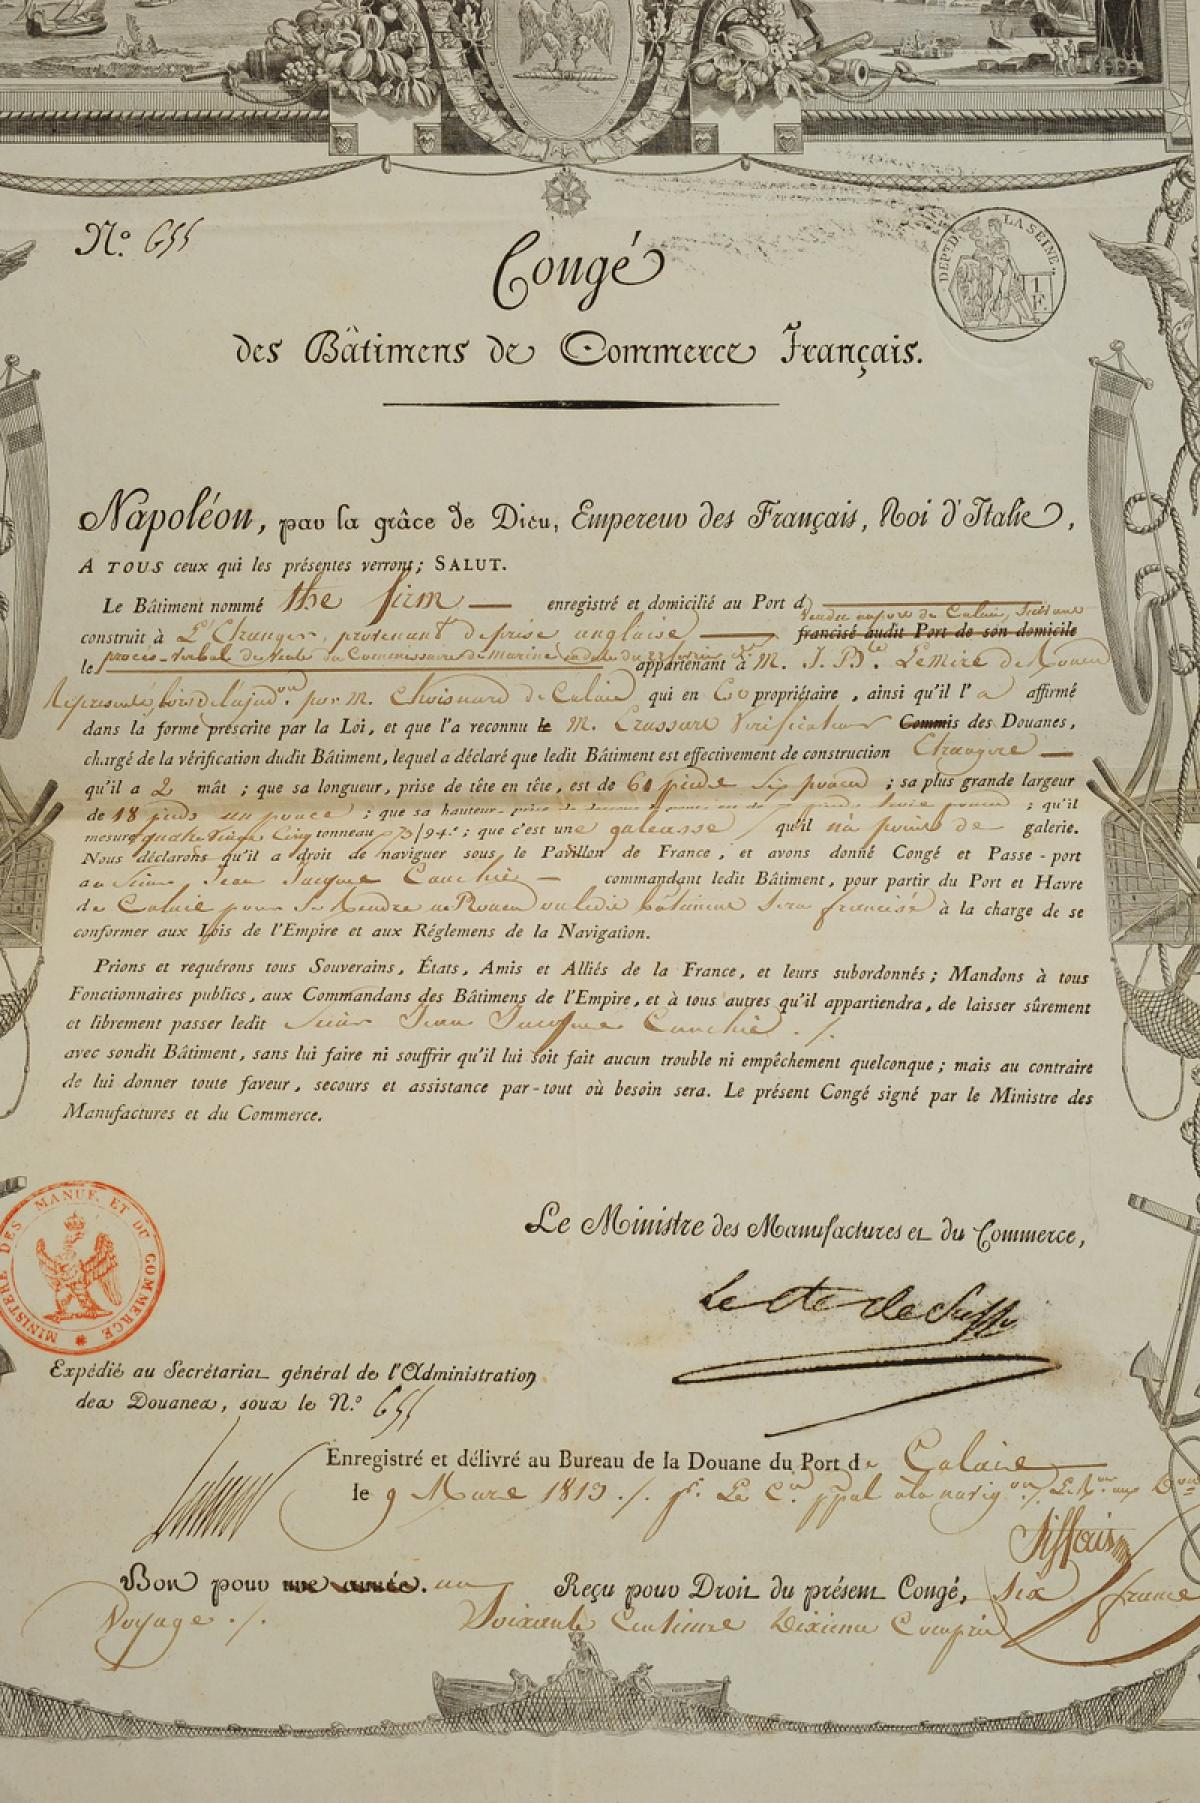 N.º 655
DEPT. D. LA SEINE.
1 F.
Congé
des Bâtimens de Commerce Français.
Napoléon, par la grâce de Dieu, Empereur des Français, Roi d'Italie,
A TOUS ceux qui les présentes verront; SALUT.
Le Bâtiment nommé the firm — enregistré et domicilié au Port d
vendu au port de Calais, suivant
construit à L'Etranger, provenant de prise anglaise — francisé audit Port de son domicile
le procès-verbal de vente du Commissaire de marine en date du 22 appartenant à M. J. B.te Lemire de Rouen
Représenté, lors de l'ajud.on par M. Choisnard de Calais qui en Co propriétaire, ainsi qu'il l'a affirmé
dans la forme prescrite par la Loi, et que l'a reconnu le M. Crassart Vérificateur Commis des Douanes,
chargé de la vérification dudit Bâtiment, lequel a déclaré que ledit Bâtiment est effectivement de construction Etrangère —
qu'il a 2 mât; que sa longueur, prise de tête en tête, est de 60 pieds six pouces; sa plus grande largeur
de 18 pieds un pouce; que sa hauteur pieds trois pouces; qu'il
mesure quatre Vingt Cinq tonneaux /94.e; que c'est une galeasse qu'il n'a point de galerie.
Nous déclarons qu'il a droit de naviguer sous le Pavillon de France, et avons donné Congé et Passe-port
au Sieur Jean Jacques Cauchie — commandant ledit Bâtiment, pour partir du Port et Havre
de Calais pour Se Rendre à Rouen où ledit bâtiment Sera francisé à la charge de se
conformer aux Lois de l'Empire et aux Réglemens de la Navigation.
Prions et requérons tous Souverains, États, Amis et Alliés de la France, et leurs subordonnés; Mandons à tous
Fonctionnaires publics, aux Commandans des Bâtimens de l'Empire, et à tous autres qu'il appartiendra, de laisser sûrement
et librement passer ledit Sieur Jean Jacques Cauchie ./.
avec sondit Bâtiment, sans lui faire ni souffrir qu'il lui soit fait aucun trouble ni empêchement quelconque; mais au contraire
de lui donner toute faveur, secours et assistance par-tout où besoin sera. Le présent Congé signé par le Ministre des
Manufactures et du Commerce.
MINISTERE DES MANUF. ET DU COMMERCE
Le Ministre des Manufactures et du Commerce,
Le Cte de Sussy
Expédié au Secrétariat général de l'Administration
des Douanes, sous le N.º 655
Enregistré et délivré au Bureau de la Douane du Port de Calais
le 9 Mars 1813 ./. Le C. ppal à la navig.on
Bon pour une année. un Reçu pour Droit du présent Congé, six francs
Voyage ./. Soixante Centimes Dixième Compris